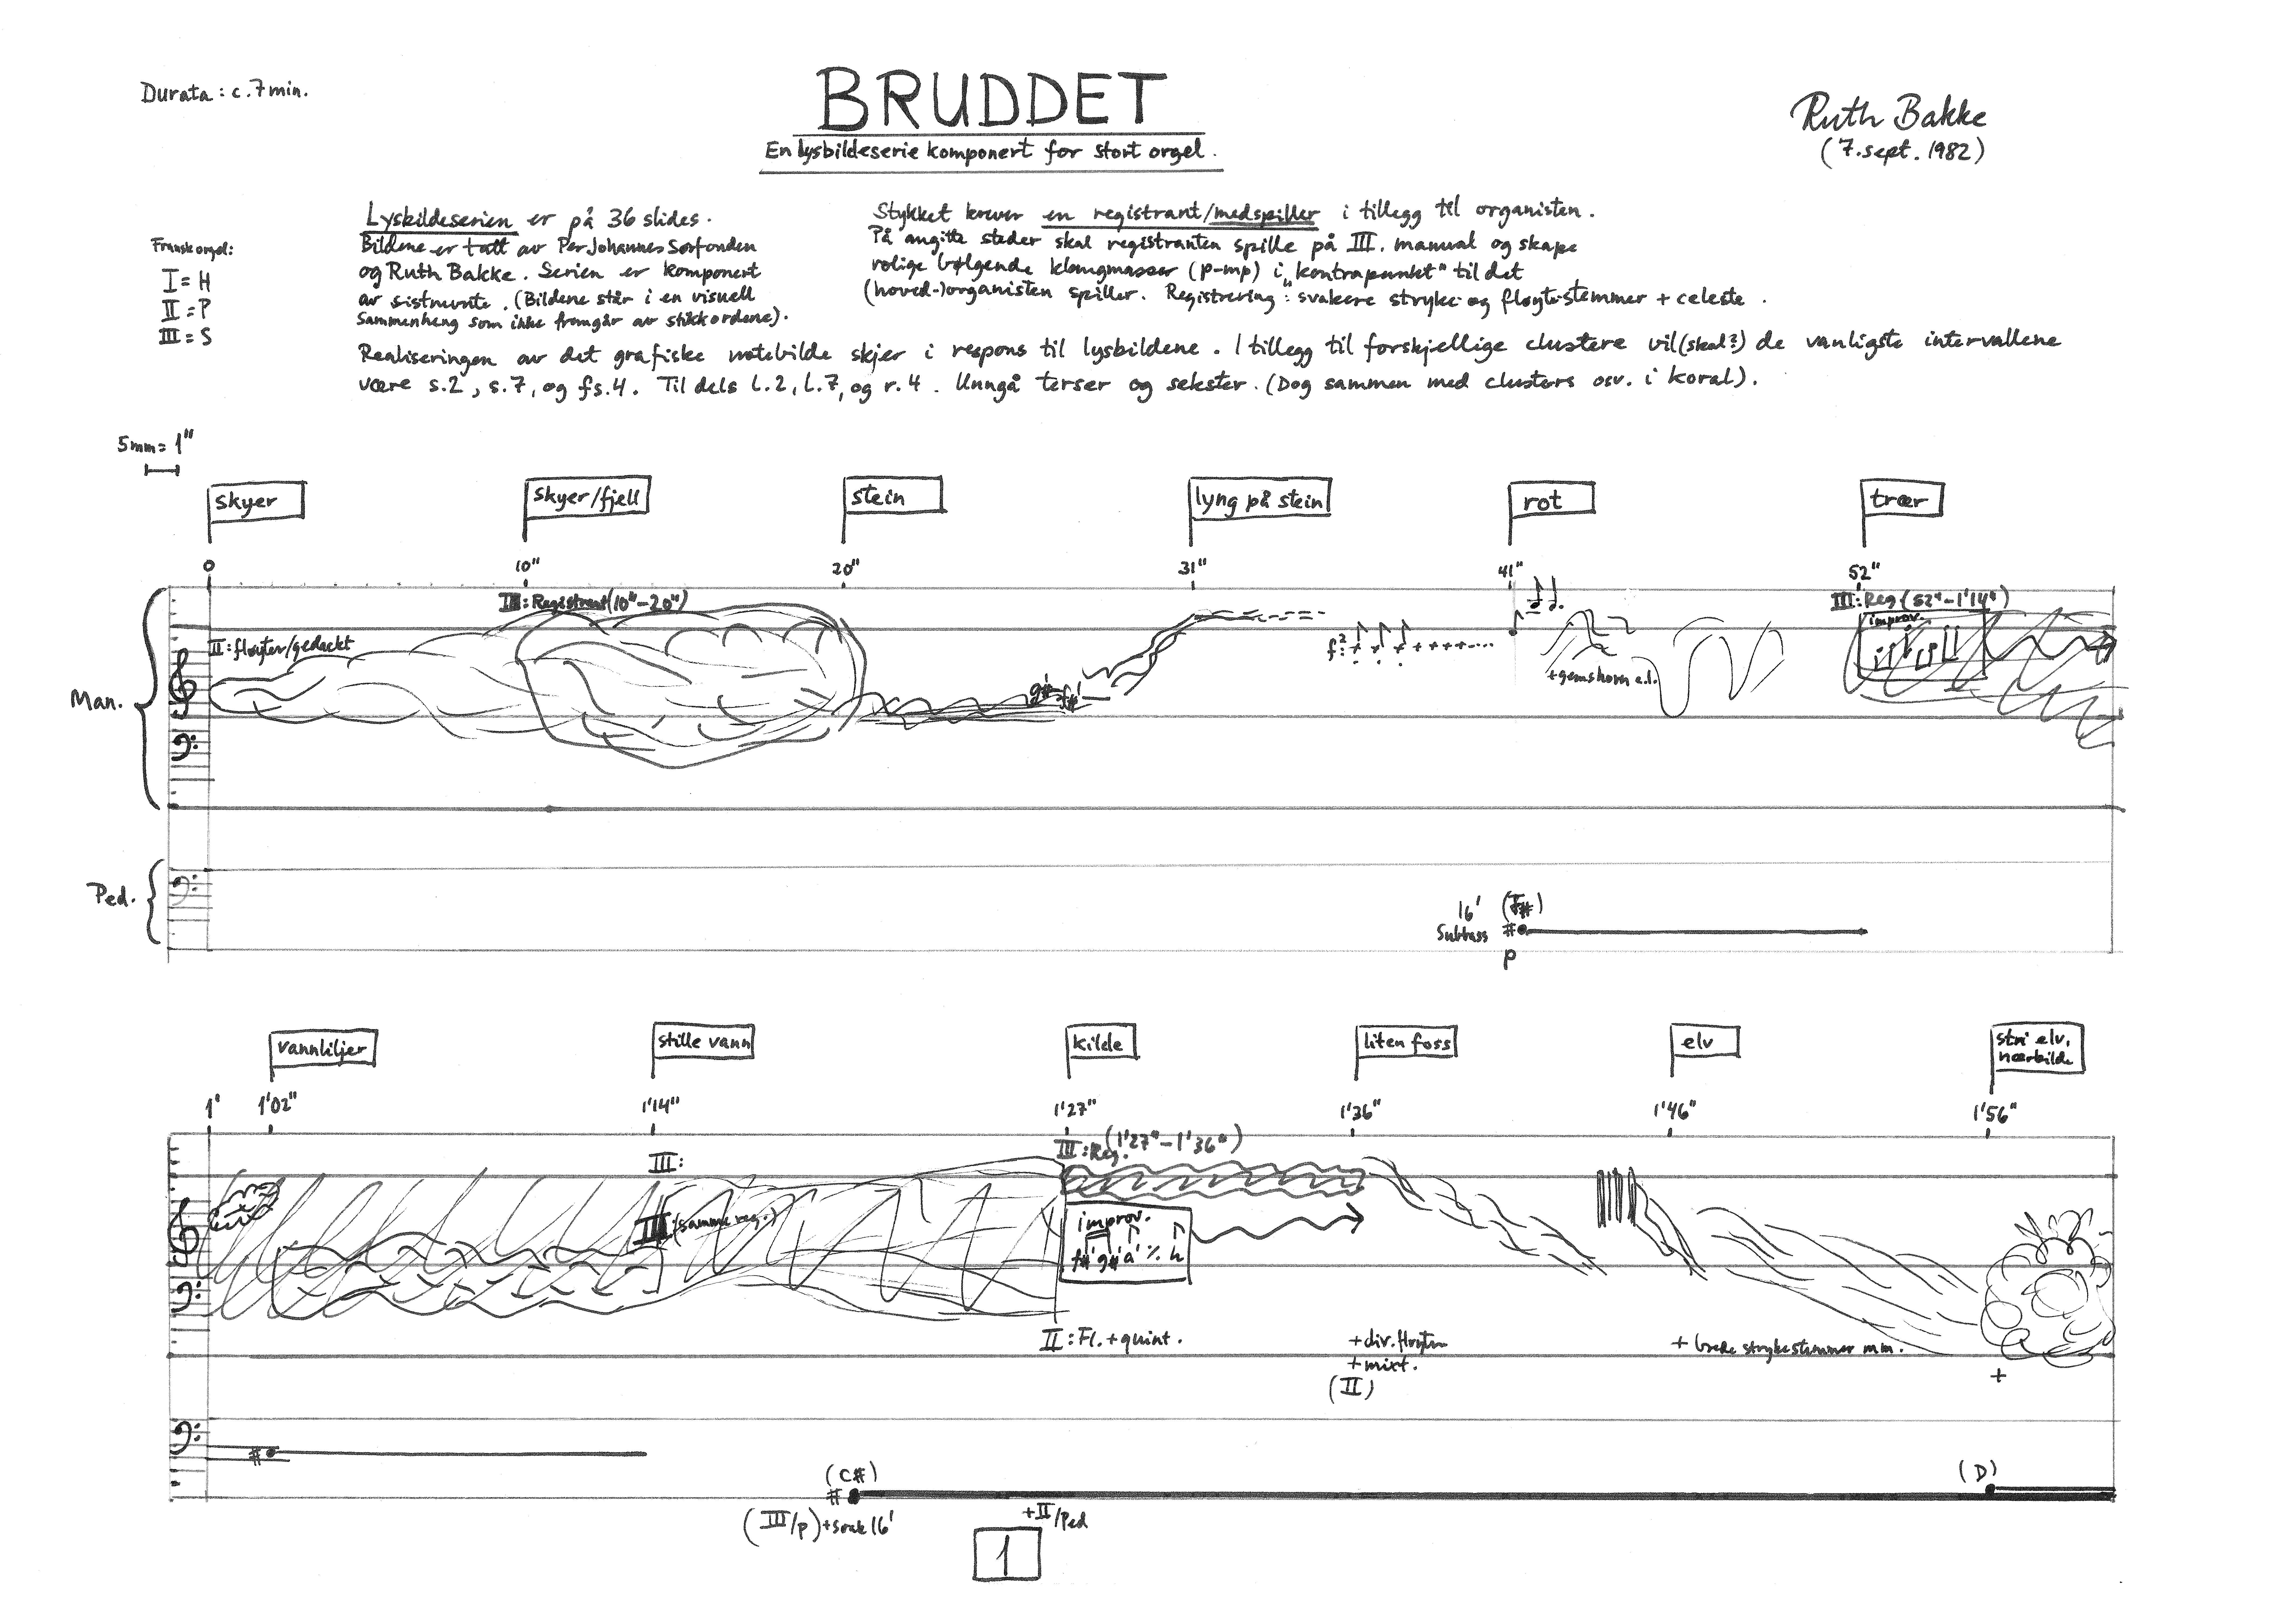 Durata : c. 7 min.
BRUDDET
En lysbildeserie komponert for stort orgel.
Ruth Bakke
(7. sept. 1982)
Fransk orgel:
I = H
II = P
III = S
Lysbildeserien er på 36 slides.
Bildene er tatt av Per Johannes Sørfonden
og Ruth Bakke. Serien er komponert
av sistnevnte. (Bildene står i en visuell
Sammenheng som ikke fremgår av stikkordene).
Stykket krever en registrant/medspiller i tillegg til organisten.
På angitte steder skal registranten spille på III. manual og skape
rolige bølgende klangmasser (p-mp) i „kontrapunkt" til det
(hoved-)organisten spiller. Registrering: svakere stryke- og fløytestemmer + celeste.
Realiseringen av det grafiske notebilde skjer i respons til lysbildene. I tillegg til forskjellige clustere vil (skal?) de vanligste intervallene
være s.2, s.7, og fs.4. Til dels l.2, l.7, og r.4. Unngå terser og sekster. (Dog sammen med clusters osv. i koral).
5mm = 1"
skyer
skyer/fjell
stein
lyng på stein
rot
trær
0
10"
20"
31"
41"
52"
III: Registrant (10"-20")
III: Reg (52"-1'14")
improv.
II: fløyter/gedackt
g#' f#'
f²:
+gemshorn e.l.
Man.
Ped.
16' (F#)
Subbass #
p
vannliljer
stille vann
kilde
liten foss
elv
stri elv,
nærbilde
1'
1'02"
1'14"
1'27"
1'36"
1'46"
1'56"
III:
III: Reg. (1'27"-1'36")
III (samme reg.)
improv.
f#' g#' a' ٪ h
II: Fl. + quint.
+div. fløyter
+mixt.
(II)
+ brede strykestemmer m.m.
+
#
(C#)
#
(D)
(III/p) +svak 16'
+II/Ped
1